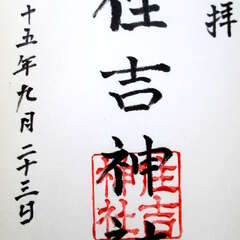 拝
住吉神社
十五年九月二十三日
住吉
神社